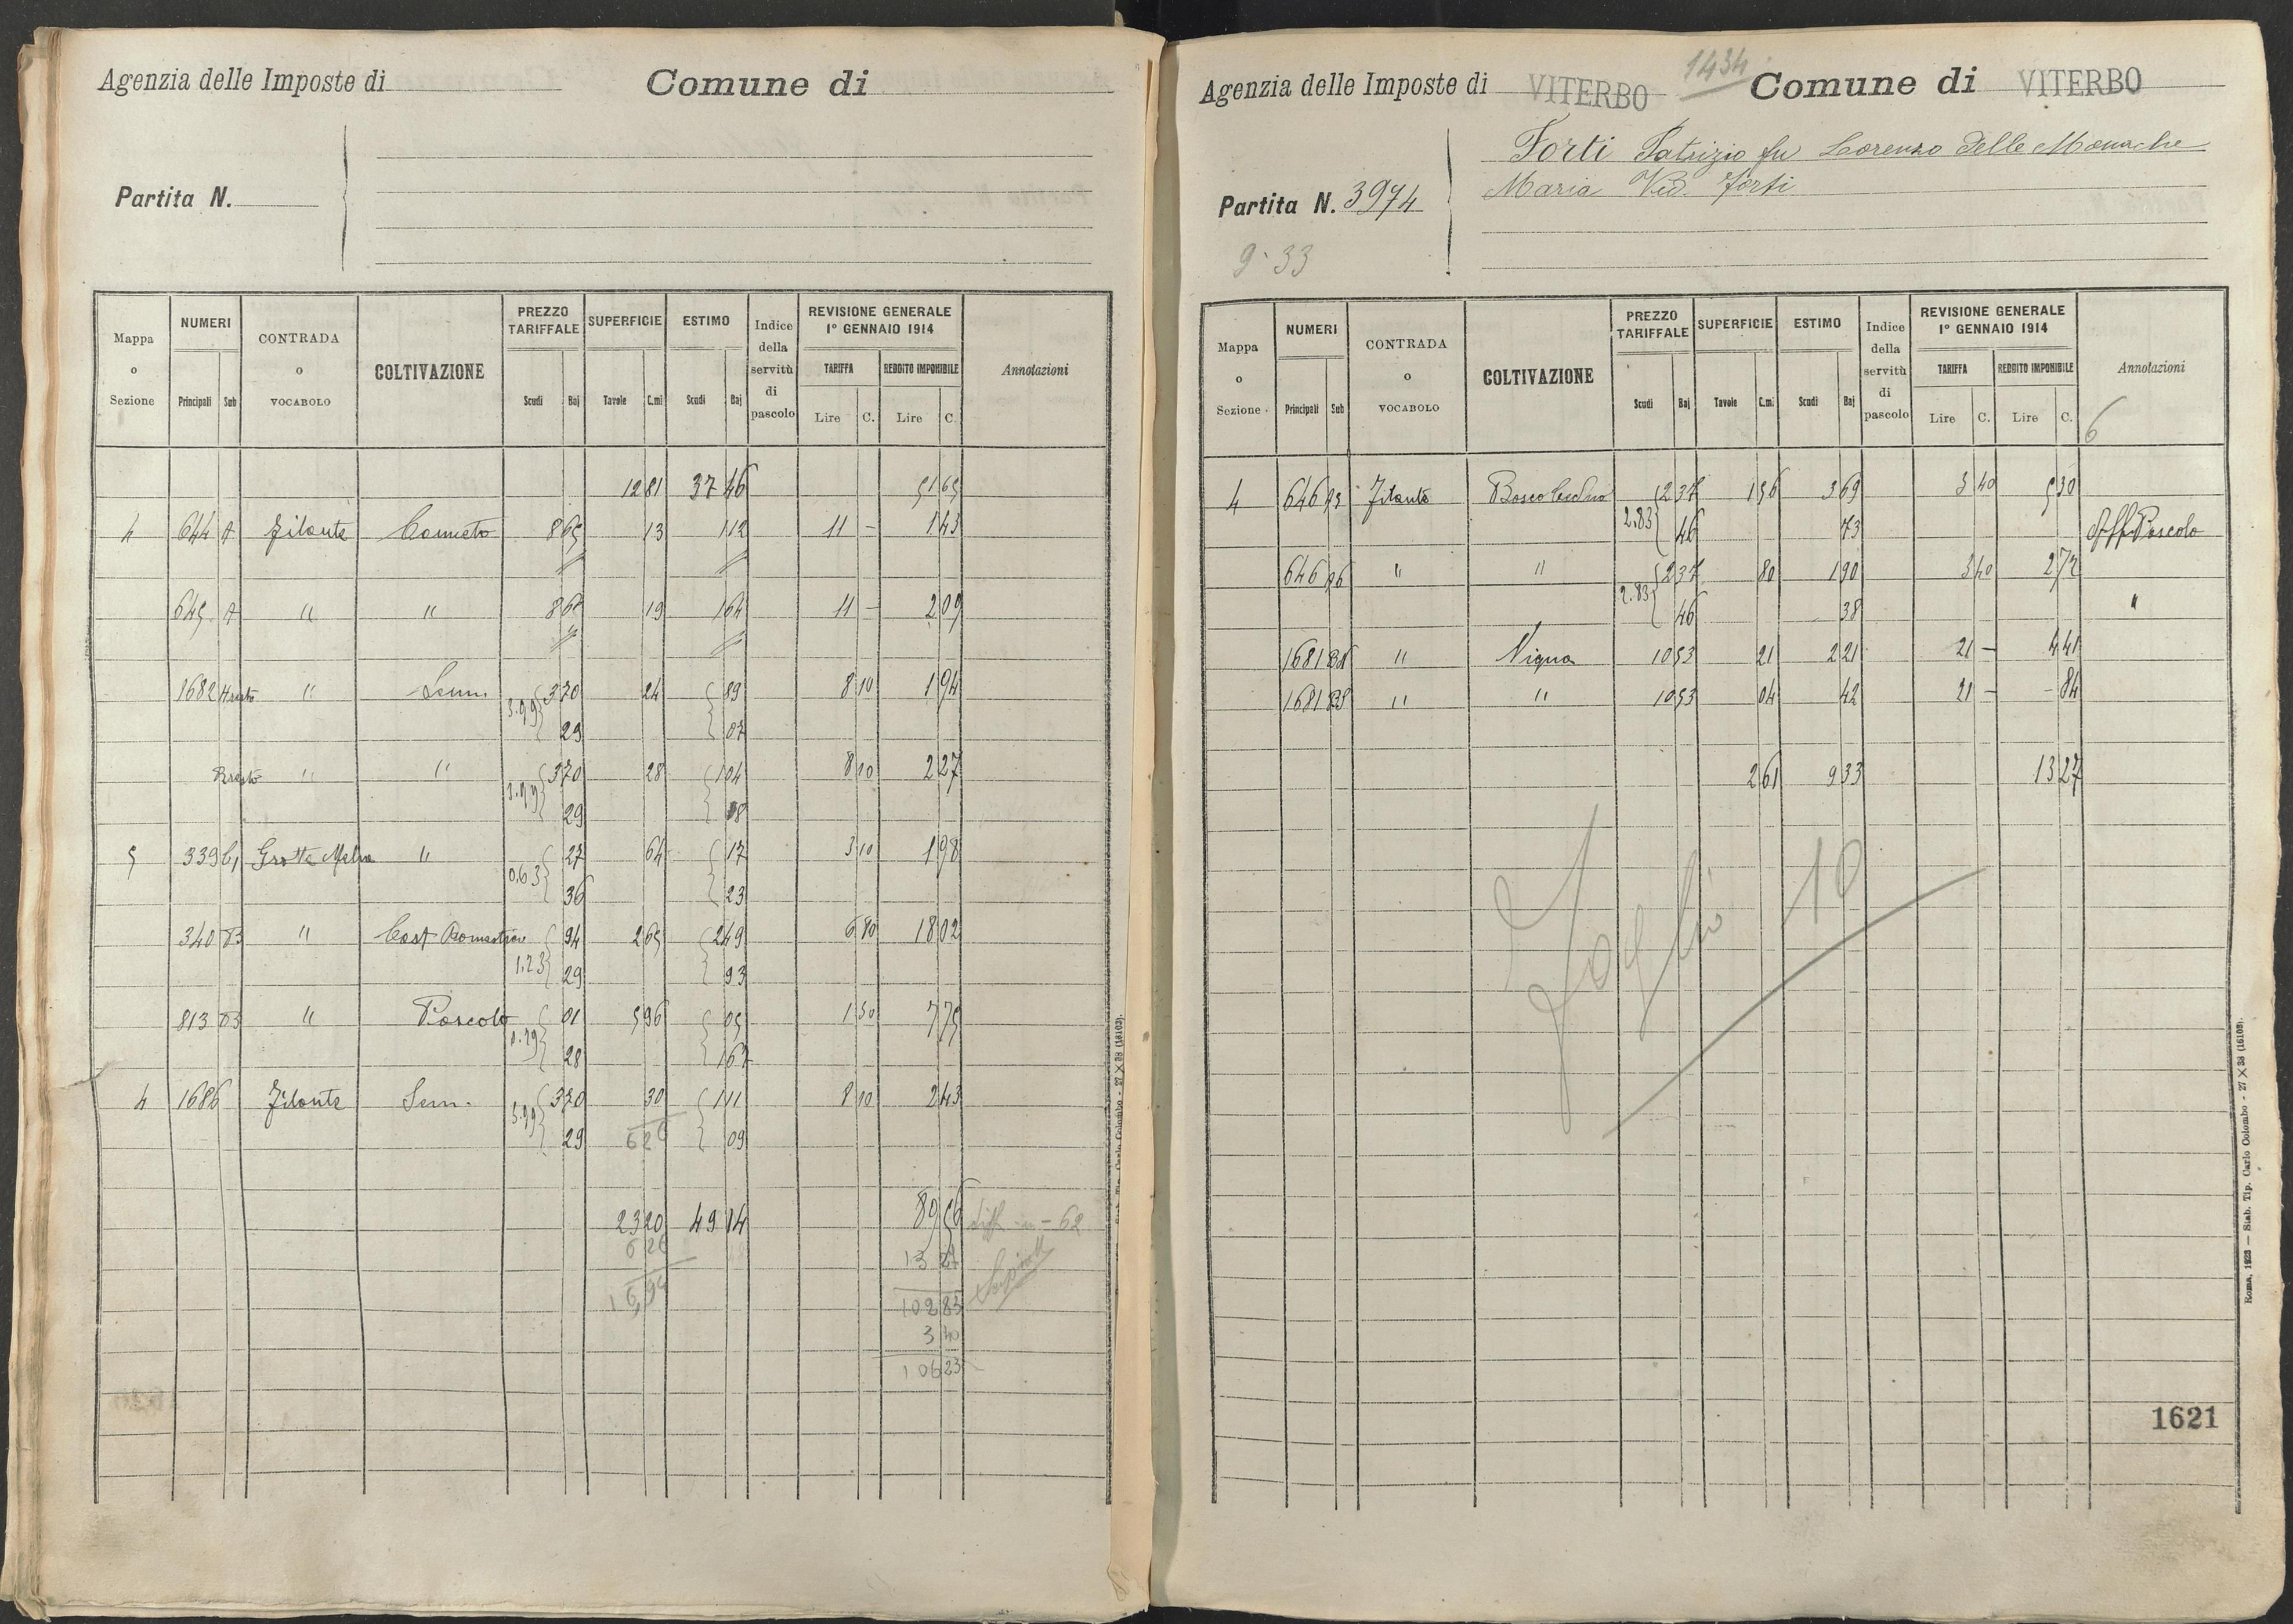 Agenzia delle Imposte di Comune di
Partita N.
Mappa o Sezione NUMERI CONTRADA o VOCABOLO COLTIVAZIONE PREZZO TARIFFALE SUPERFICIE ESTIMO Indice della servitù di pascolo REVISIONE GENERALE 1° GENNAIO 1914 Annotazioni
TARIFFA REDDITO IMPONIBILE
Principali Sub Scudi Baj Tavole C.mi Scudi Baj Lire C. Lire C.
12 81 37 46 51 65
4 644 A Filante Canneto 8 65 13 1 12 11 – 1 43
645 A " " 8 65 19 1 64 11 – 2 09
1682 A resto " Sem. 3.99 3 70 24 89 8 10 1 94
29 07
B resto " " 3.99 3 70 28 1 04 8 10 2 27
29 08
5 339 C1 Grotta " 0.63 27 64 17 3 10 1 98
36 23
340 " Cast 1.23 94 2 65 2 49 6 80 18 02
29 93
813 " Pascolo 0.29 01 5 96 05 1 30 7 75
28 1 67
4 1686 Filante Sem. 3.99 3 70 30 1 11 8 10 2 43
29 6 26 09
23 20 49 14 89 56 – 62
6 26 13 27
16,94 102 83
3 40
106 23
Roma, 1923 — Stab. Tip. Carlo Colombo - 27 X 38 (16103).
Agenzia delle Imposte di VITERBO 1434 Comune di VITERBO
Forti Patrizio fu Lorenzo Delle Monache
Maria Ved. Forti
Partita N. 3974
9.33
Mappa o Sezione NUMERI CONTRADA o VOCABOLO COLTIVAZIONE PREZZO TARIFFALE SUPERFICIE ESTIMO Indice della servitù di pascolo REVISIONE GENERALE 1° GENNAIO 1914 Annotazioni
TARIFFA REDDITO IMPONIBILE
Principali Sub Scudi Baj Tavole C.mi Scudi Baj Lire C. Lire C.
6
4 646 Filante Bosco Ceduo 2 37 1 56 3 69 3 40 5 30
2.83 46 73 Aff Pascolo
646 " " 2 37 80 1 90 3 40 2 72
2.83 46 38 "
1681 " Vigna 10 53 21 2 21 21 – 4 41
1681 " " 10 53 04 42 21 – – 84
2 61 9 33 13 27
Foglio 10
1621
Roma, 1923 — Stab. Tip. Carlo Colombo - 27 X 38 (16103).